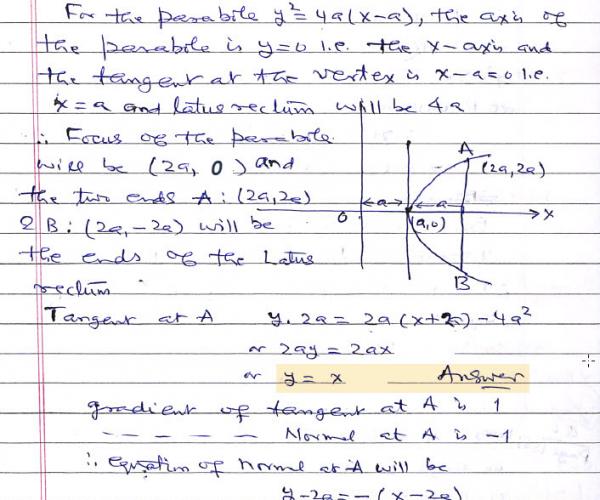 For the parabole y² = 4a(x-a), the axis of
the parabole is y=0 i.e. the x-axis and
the tangent at the vertex is x-a=0 i.e.
x=a and Latus rectum will be 4a
∴ Focus of the parabole
will be (2a, 0) and
the two ends A: (2a, 2a)
& B: (2a, -2a) will be
the ends of the Latus
rectum
A
(2a, 2a)
a
a
0
(a,0)
X
B
Tangent at A y. 2a = 2a(x+2a) - 4a²
or 2ay = 2ax
or y = x Answer
gradient of tangent at A is 1
— — — — Normal at A is -1
∴ Equation of normal at A will be
y-2a = -(x-2a)